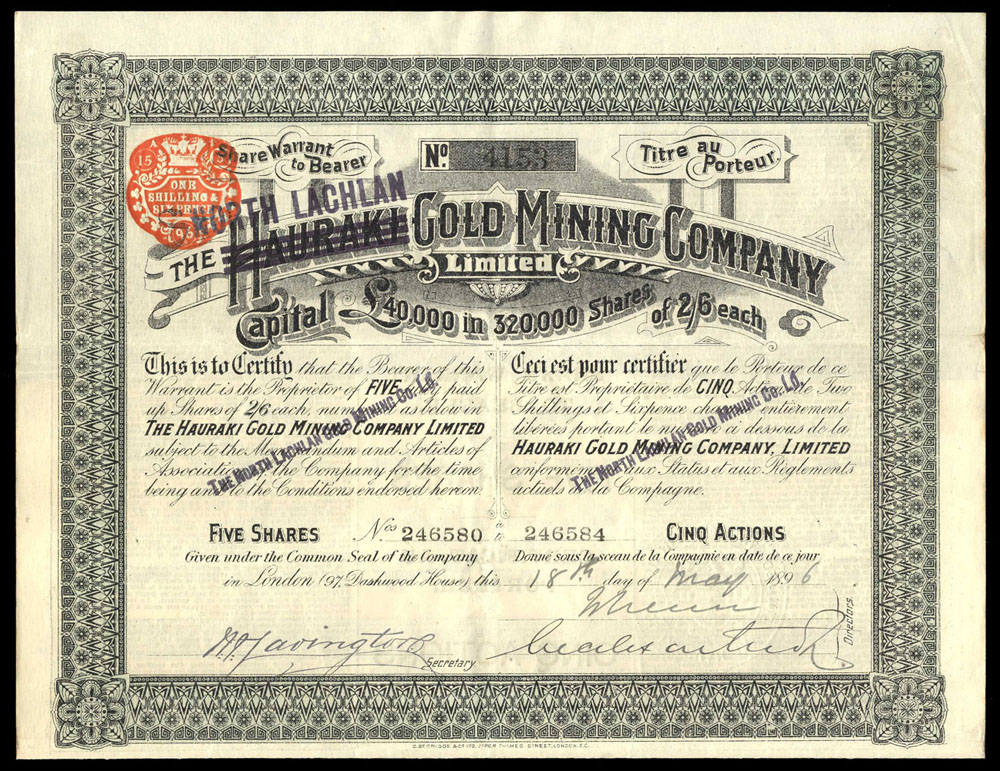 Share Warrant
to Bearer
No. 4153
Titre au
Porteur.
A
15
ONE
SHILLING &
SIXPENCE
95
NORTH LACHLAN
THE HAURAKI GOLD MINING COMPANY
Limited
Capital £40,000 in 320,000 Shares of 2/6 each
This is to Certify that the Bearer of this
Warrant is the Proprietor of FIVE paid
up Shares of 2/6 each, numbered as below in
THE HAURAKI GOLD MINING COMPANY LIMITED
subject to the Memorandum and Articles of
Association of the Company for the time
being and to the Conditions endorsed hereon.
THE NORTH LACHLAN GOLD MINING CO: LD.
Ceci est pour certifier que le Porteur de ce
Titre est Propriétaire de CINQ Actions de Two
Shillings et Sixpence chacune entièrement
libérées portant le numéro ci dessous de la
HAURAKI GOLD MINING COMPANY, LIMITED
conformément aux Status et aux Règlements
actuels de la Compagne.
THE NORTH LACHLAN GOLD MINING CO: LD.
FIVE SHARES Nos 246580 à to 246584 CINQ ACTIONS
Given under the Common Seal of the Company
Donné sous la sceau de la Compagnie en date de ce jour
in London (97, Dashwood House) this 18th day of May 1896
Secretary
Directors.